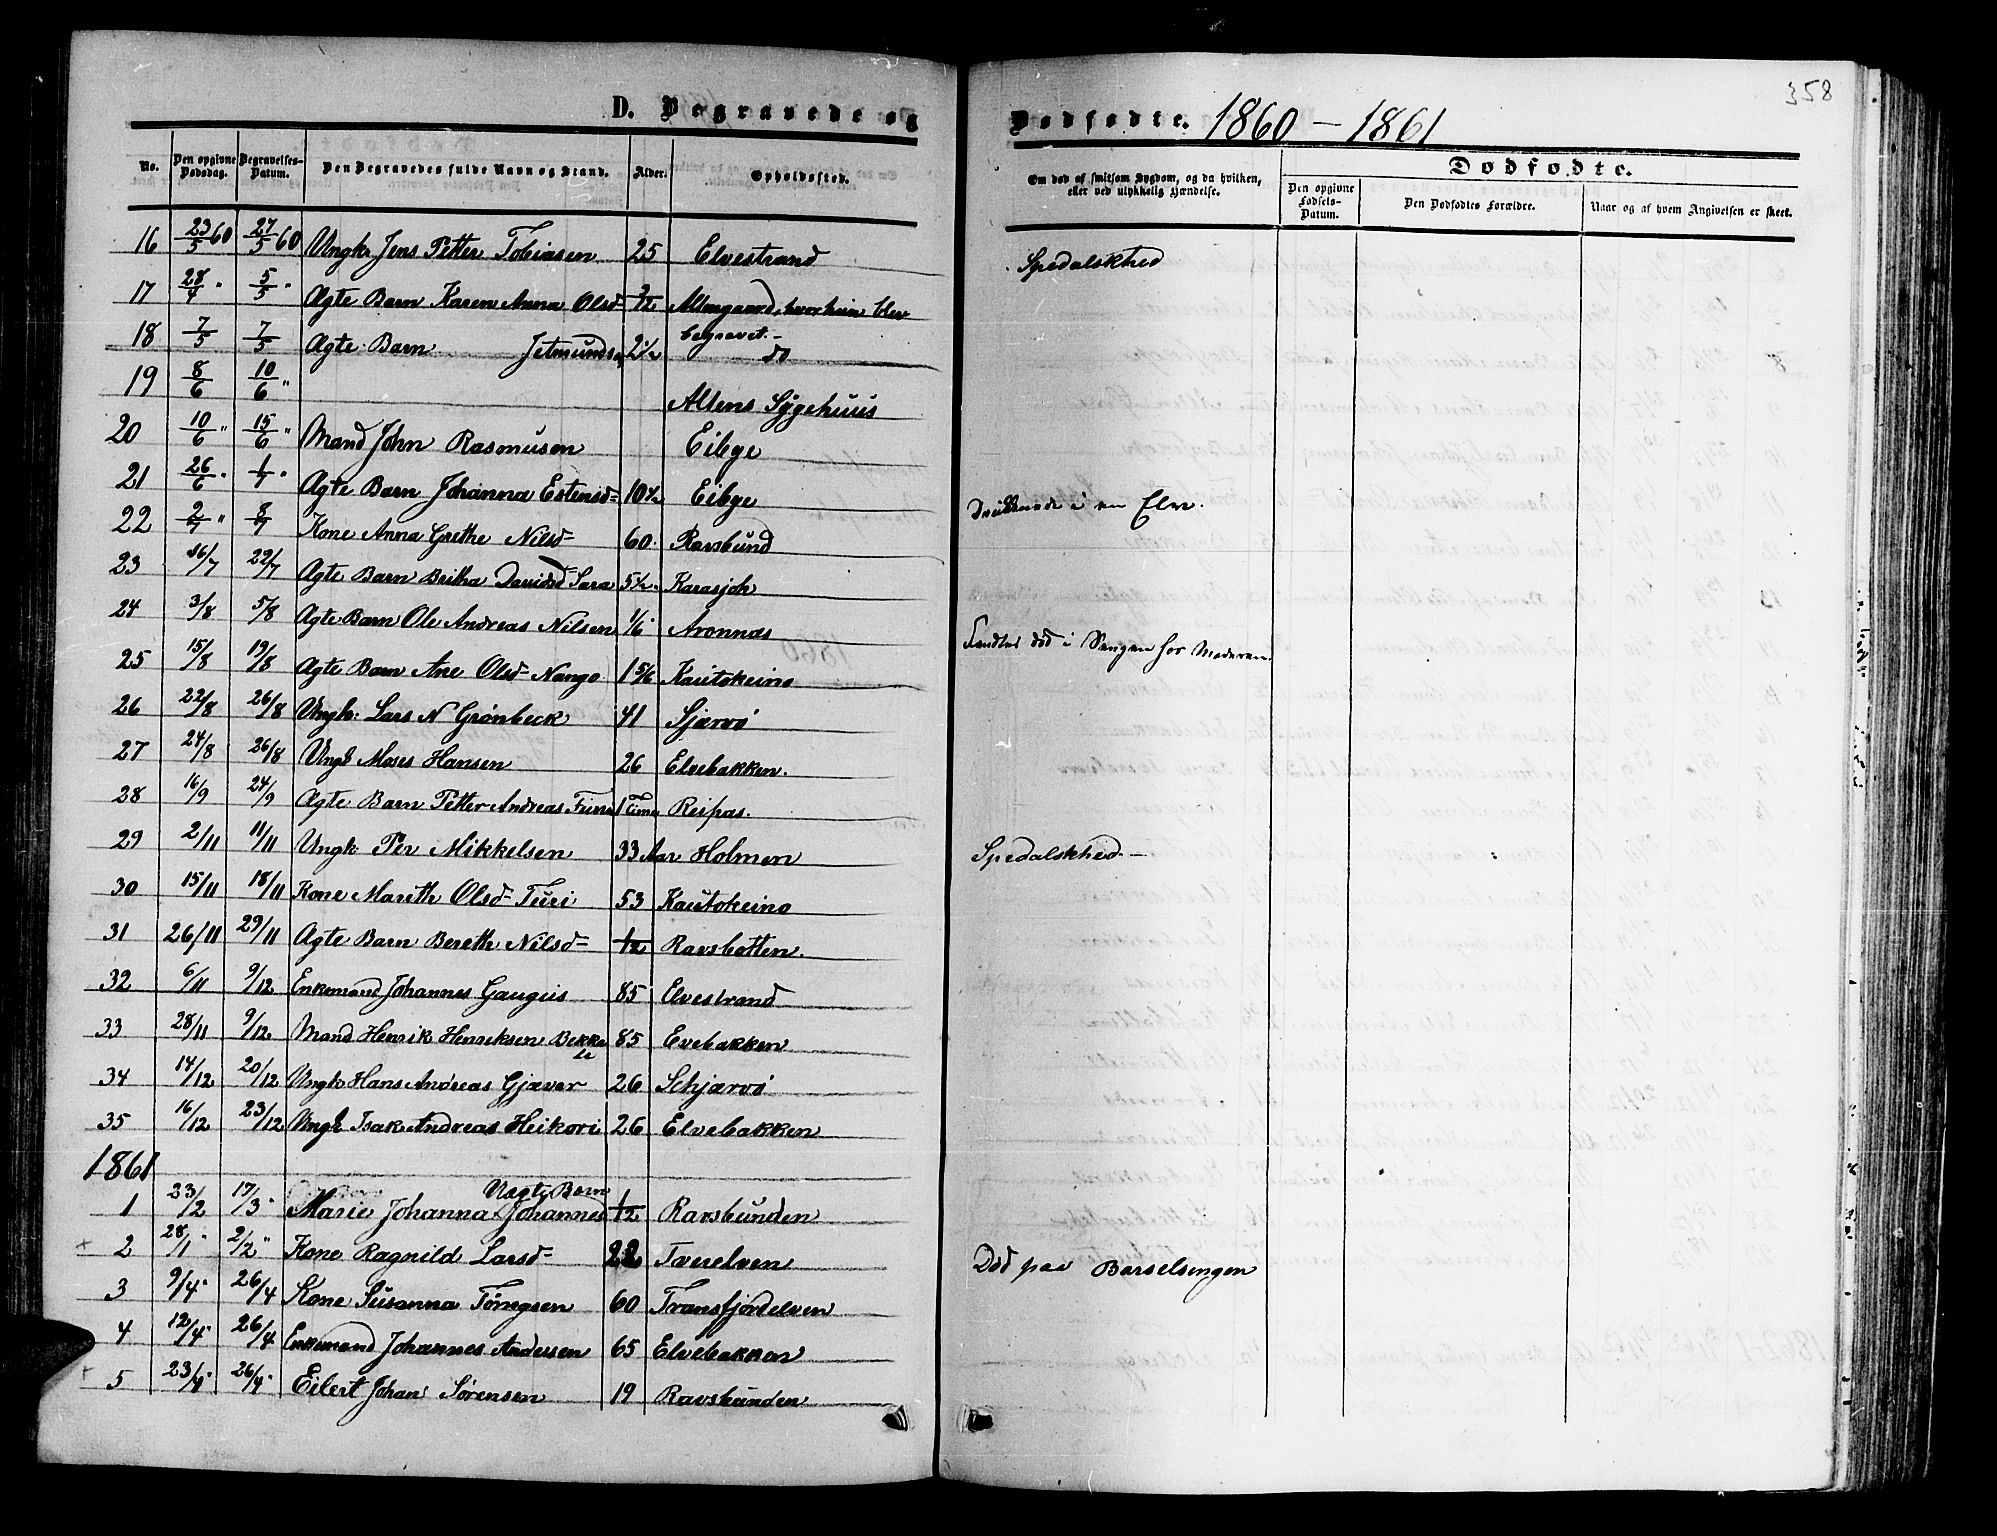 358
D. Begravede og Dødfødte. 1860 – 1861
No. Den opgivne Dødsdag. Begravelses-Datum. Den Begravedes fulde Navn og Stand. Alder. Opholdssted. Om død af smitsom Sygdom, og da hvilken, eller ved ulykkelig Hændelse. Dødfødte.
Den opgivne Fødsels-Datum. Den Dødfødtes Forældre. Naar og af hvem Angivelsen er skeet.
16 23/5 60 27/5 60 Ungk: Jens Petter Tobiasen 25 Elvestrand Spedalskhed
17 28/4 " 5/5 " Ægte Barn Karen Anna Olsd= 2/12 Altengaard, hvor hun blev begravet. –
18 7/5 7/5 Ægte Barn Jetmundsen 2½ do
19 8/6 10/6 " Altens Sygehuus
20 10/6 " 15/6 " Mand John Rasmusen Eibye
21 26/6 " 1/7 " Ægte Barn Johanna Estensd= 10½ Eibye Druknede i en Elv.
22 2/7 " 8/7 Kone Anna Grethe Nilsd= 60 Ravsbund
23 16/7 22/7 Ægte Barn Britha Davidsd= Sara 5½ Karasjok
24 3/8 5/8 Ægte Barn Ole Andreas Nilsen 1/6 Aronnæs Fandtes død i Sengen hos Moderen.
25 15/8 19/8 Ægte Barn Ane Olsd= Nango 1 5/6 Kautokeino
26 22/8 26/8 Ungk: Lars N Grønbeck 41 Sjærvø
27 24/8 26/8 Ungk Moses Hansen 26 Elvebakken.
28 16/9 24/9 Ægte Barn Petter Andreas 1 Time Reipas.
29 2/11 11/11 Ungk Per Mikkelsen 33 Aar Holmen Spedalskhed. –
30 15/11 18/11 Kone Marith Olsd= Turi 53 Kautokeino
31 26/11 29/11 Ægte Barn Bereth Nilsd= 1/12 Ravsbotten.
32 6/11 9/12 Enkemand Johannes Gaugus 85 Elvestrand
33 28/11 9/12 Mand Henrik Henriksen Bekkele 85 Evebakken
34 14/12 20/12 Ungk: Hans Andreas Gjæver 26 Schjærvø
35 16/12 23/12 Ungk Isak Andreas Heikori 26 Elvebakken
1861
Uægte Barn
1 23/2 17/3 " Marie Johanna Johannes 1/12 Ravsbunden
2 28/1 " 2/2 " Kone Ragnild Larsd= 22 Tverelven Død paa Barselsengen
3 9/4 " 26/4 Kone Susanna 60 Transfjordelven
4 12/4 " 26/4 Enkemand Johannes Andersen 65 Elvebakken
5 23/4 " 26/4 " Eilert Johan Sørensen 19 Ravsbunden